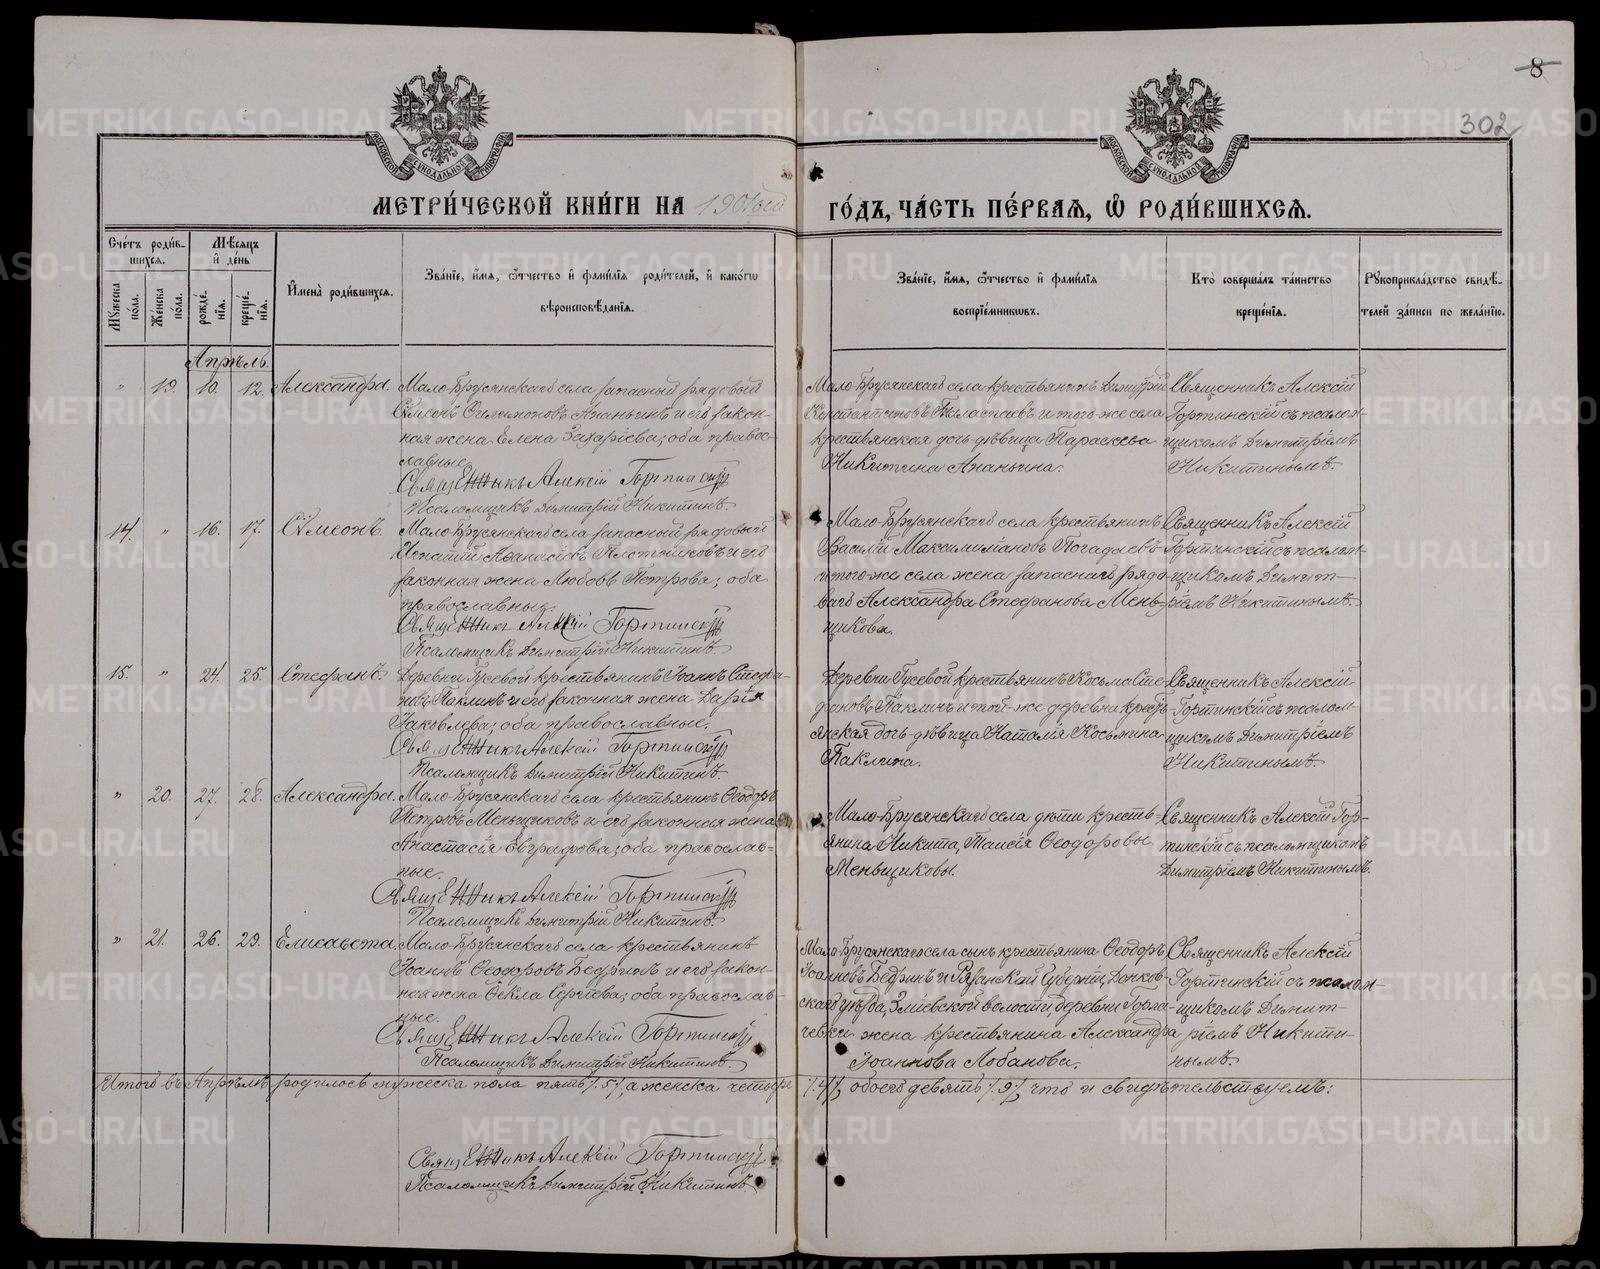 8
302
МЕТРИЧЕСКОЙ КНИГИ НА 1901ый ГОДЪ, ЧАСТЬ ПЕРВАЯ, Ѿ РОДИВШИХСЯ.
Счетъ родившихся.
Мѣсяцъ и день
Мужеска пола.
Женска пола.
рожденія.
крещенія.
Имена родившихся.
Званіе, имя, ѿтчество и фамилія родителей, и какогѡ
вѣроисповѣданія.
Званіе, имя, ѿтчество и фамилія
воспріемникѡвъ.
Кто совершалъ таинство
крещенія.
Рукоприкладство свидѣ-
телей записи по желанію.
Апрѣль.
" 19. 10. 12. Александра.
Мало-Брусянскаго села запасный рядовый
Сѵмеонъ Филимоновъ Ананьинъ и его закон-
ная жена Елена Захаріева; оба правос-
лавные.
Священникъ Алексій Гортинскій
Псаломщикъ Димитрій Никитинъ.
Мало-Брусянскаго села крестьянинъ Димитрій
Константиновъ и того-же села
крестьянская дочь-дѣвица Параскева
Никитина Ананьина.
Священникъ Алексій
Гортинскій съ псалом-
щикомъ Димитріемъ
Никитинымъ.
14. " 16. 17. Сѵмеонъ.
Мало-Брусянскаго села запасный рядовый
Игнатій Аѳанасіевъ Плотниковъ и его
законная жена Любовь Петрова; оба
православные.
Священникъ Алексій Гортинскій
Псаломщикъ Димитрій Никитинъ.
Мало-Брусянскаго села крестьянинъ
Василій Максимиліановъ Погадаевъ
и того-же села жена запаснаго рядо-
ваго Александра Стефанова Мень-
щикова.
Священникъ Алексій
Гортинскій съ псалом-
щикомъ Димит-
ріемъ Никитинымъ.
15. " 24. 25. Стефанъ.
Деревни Гусевой крестьянинъ Іоаннъ Стефа-
новъ Паклинъ и его законная жена Дарія
Іаковлева; оба православные.
Священникъ Алексій Гортинскій
Псаломщикъ Димитрій Никитинъ.
Деревни Гусевой крестьянинъ Косьма Сте-
фановъ Паклинъ и той-же деревни кресть-
янская дочь-дѣвица Наталія Косьмина
Паклина.
Священникъ Алексій
Гортинскій съ псалом-
щикомъ Димитріемъ
Никитинымъ.
" 20. 27. 28. Александра.
Мало-Брусянскаго села крестьянинъ Ѳеодоръ
Петровъ Меньщиковъ и его законная жена
Анастасія Евграфова; оба православ-
ные.
Священникъ Алексій Гортинскій
Псаломщикъ Димитрій Никитинъ.
Мало-Брусянскаго села дѣти кресть-
янина Никита, Таисія Ѳеодоровы
Меньщиковы.
Священникъ Алексій Гор-
тинскій съ псаломщикомъ
Димитріемъ Никитинымъ.
" 21. 26. 29. Елисавета.
Мало-Брусянскаго села крестьянинъ
Іоаннъ Ѳеодоровъ Бедринъ и его закон-
ная жена Ѳекла Сергіева; оба православ-
ные.
Священникъ Алексій Гортинскій
Псаломщикъ Димитрій Никитинъ.
Мало-Брусянскаго села сынъ крестьянина Ѳеодоръ
Іоанновъ Бедринъ и Рязанской губерніи, Данков-
скаго уѣзда, Змievской волости деревни Горла-
чевки жена крестьянина Александра
Іоаннова Лобанова.
Священникъ Алексій
Гортинскій съ псалом-
щикомъ Димит-
ріемъ Никити-
нымъ.
Итого въ Апрѣлѣ родилось мужеска пола пять /.5/, а женска четыре /.4/, обоего девять /.9/, что и свидѣтельствуемъ:
Священникъ Алексій Гортинскій
Псаломщикъ Димитрій Никитинъ
METRIKI.GASO-URAL.RU